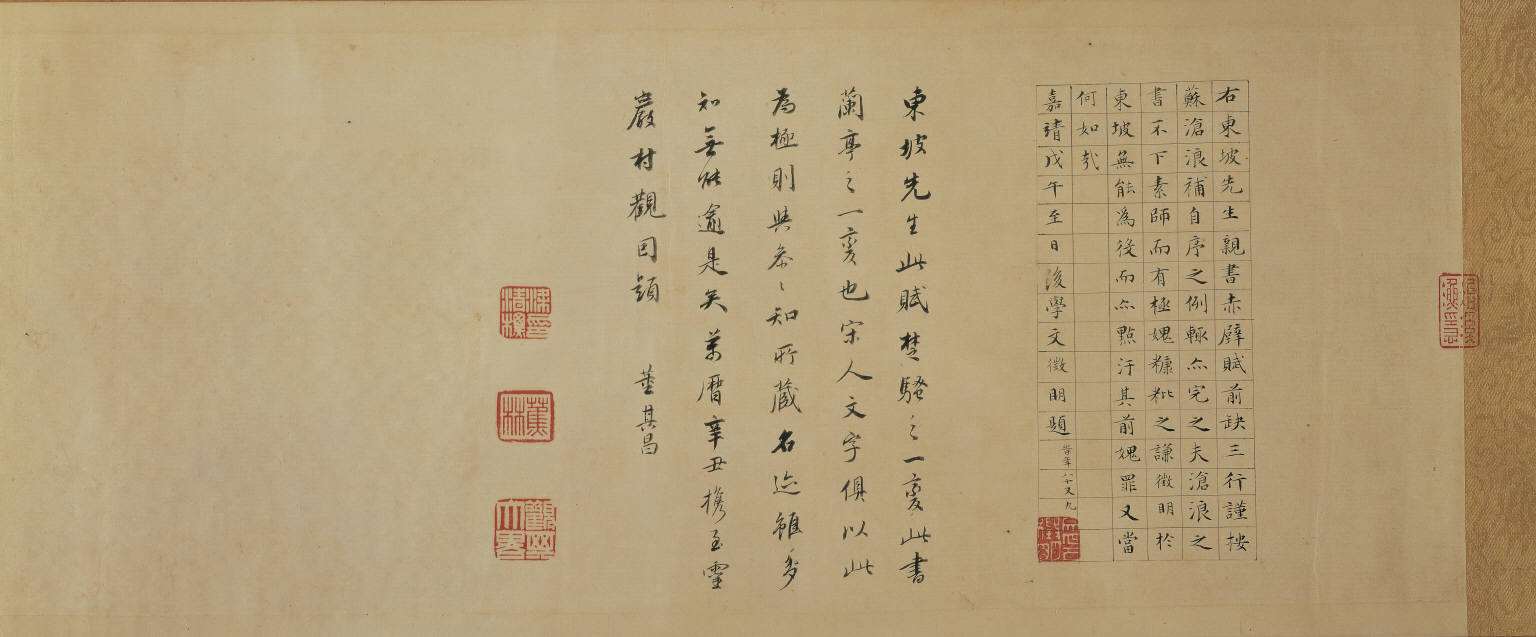 右東坡先生親書赤壁賦前缺三行謹按
蘇滄浪補自序之例輒亦完之夫滄浪之
書不下素師而有極媿糠粃之謙徵明於
東坡無能為後而亦點汙其前媿罪又當
何如哉
嘉靖戊午至日後學文徵明題
時年八十又九
東坡先生此賦楚騷之一變此書
蘭亭之一變也宋人文字俱以此
為極則與參參知所藏名迹雖多
知無能逾是矣萬曆辛丑攜至靈
巖村觀因題
董其昌
蕉林